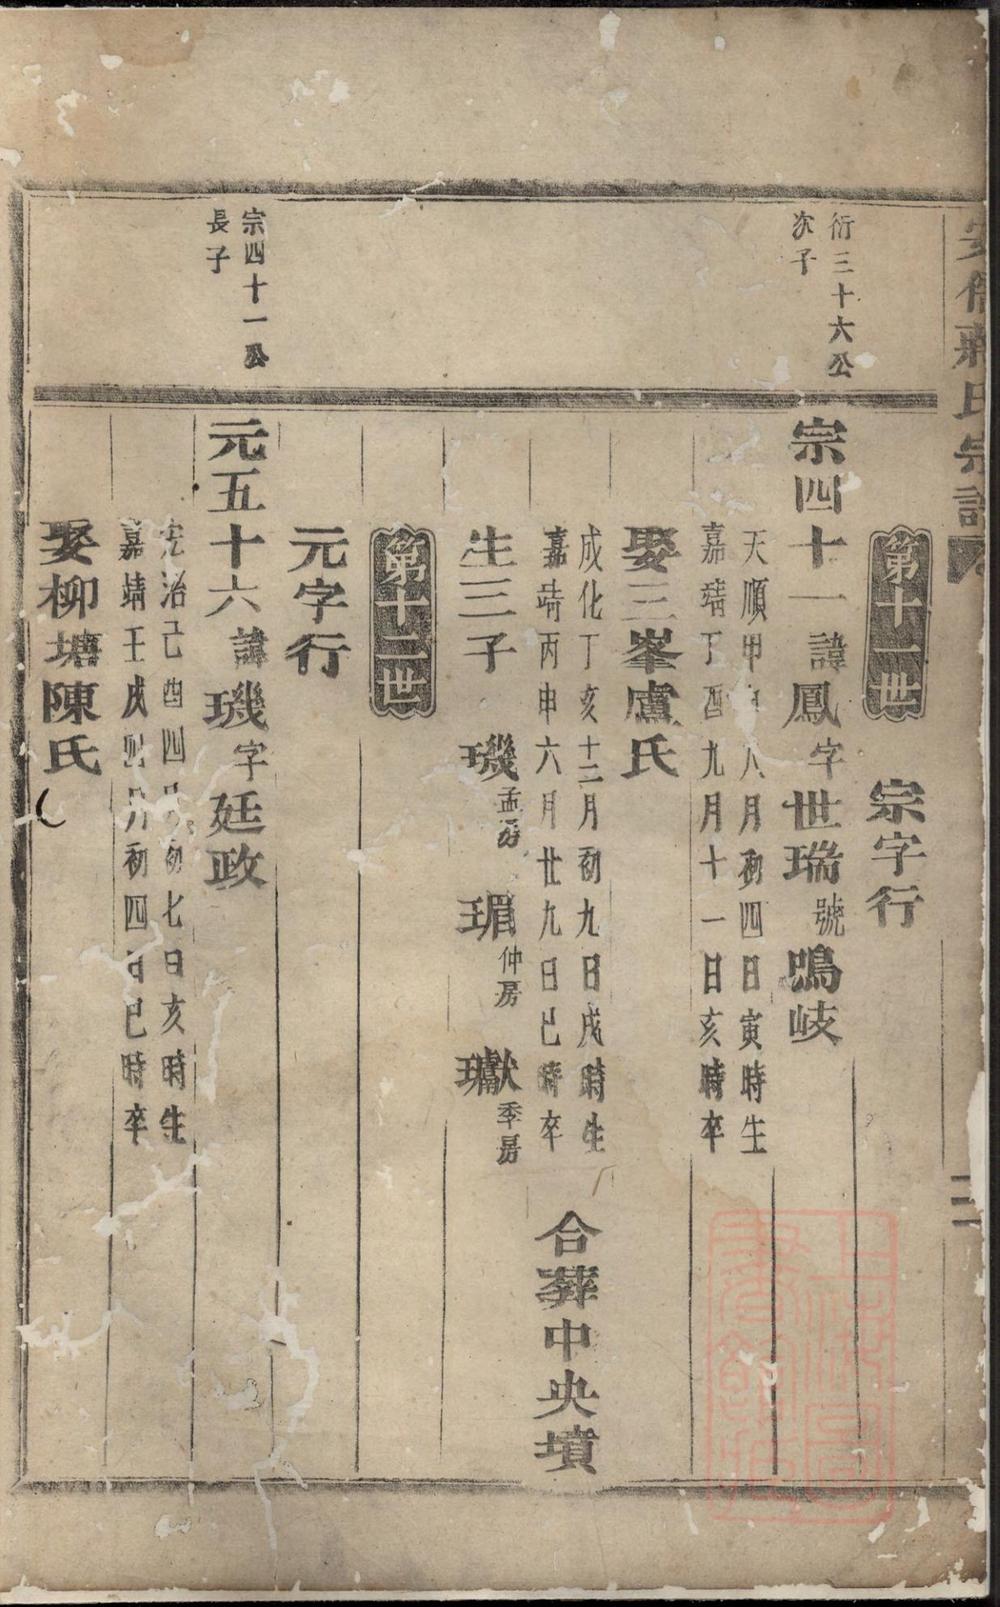 氏宗譜
二
第十一世
宗字行
衍三十六公
次子
宗四十一諱鳳字世瑞號鳴岐
天順甲申八月初四日寅時生
嘉靖丁酉九月十一日亥時卒
娶三峯盧氏
成化丁亥十二月初九日戌時生
嘉靖丙申六月廿九日巳時卒
合葬中央墳
生三子 璣孟房 瑂仲房 瓛季房
第十二世
元字行
宗四十一公
長子
元五十六諱璣字廷政
治己酉四月初七日亥時生
嘉靖壬戌四月初四日巳時卒
娶柳塘陳氏